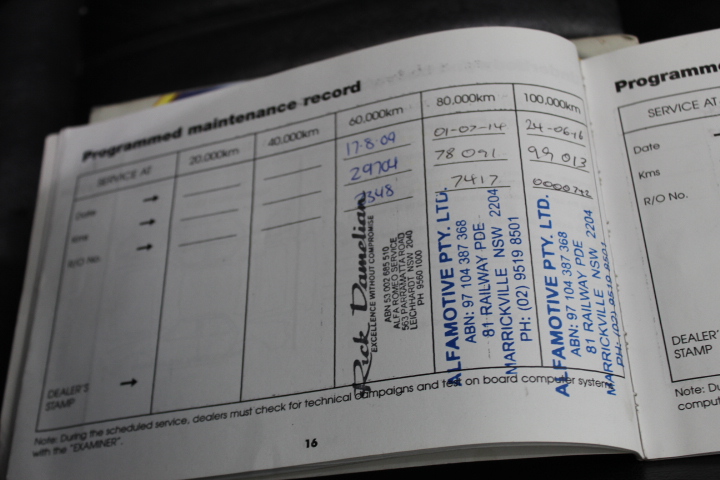 Programmed maintenance record
SERVICE AT 20,000km 40,000km 60,000km 80,000km 100,000km
Date 17-8-09 01-07-14 24-06-16
Kms 29704 78 091 99 013
R/O No. 7417
DEALER'S
STAMP
Rick Damelian
EXCELLENCE WITHOUT COMPROMISE
ABN 53 002 685 510
ALFA ROMEO SERVICE
563 PARRAMATTA ROAD
LEICHHARDT NSW 2040
PH 9560 1000
ALFAMOTIVE PTY. LTD.
ABN: 97 104 387 368
81 RAILWAY PDE
MARRICKVILLE NSW 2204
PH: (02) 9519 8501
ALFAMOTIVE PTY. LTD.
ABN: 97 104 387 368
81 RAILWAY PDE
MARRICKVILLE NSW 2204
PH: (02) 9519 8501
Note: During the scheduled service, dealers must check for technical campaigns and test on board computer system
with the "EXAMINER".
16
Programme
SERVICE AT
Date
Kms
R/O No.
DEALER'S
STAMP
Note: Du
comput